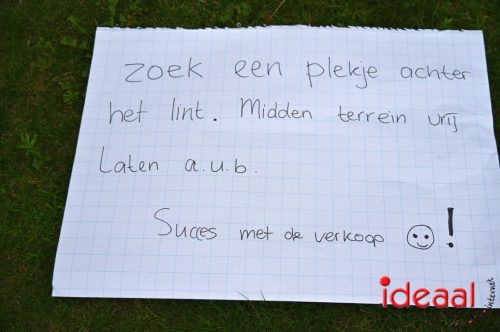 Zoek een plekje achter
het lint. Midden terrein vrij
Laten a.u.b.
Succes met de verkoop ☺!
ideaal
internet